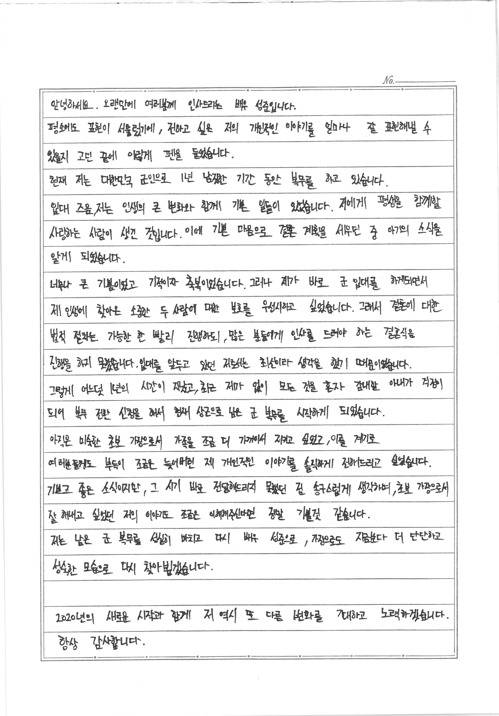 No.
안녕하세요. 오랜만에 여러분께 인사드리는 배우 성준입니다.
평소에도 표현이 서툴렀기에, 전하고 싶은 저의 개인적인 이야기를 얼마나 잘 표현해낼 수
있을지 고민 끝에 이렇게 펜을 들었습니다.
현재 저는 대한민국 군인으로 1년 남짓한 기간 동안 복무를 하고 있습니다.
입대 즈음, 저는 인생의 큰 변화와 함께 기쁜 일들이 있었습니다. 저에게 평생을 함께할
사랑하는 사람이 생긴 것입니다. 이에 기쁜 마음으로 결혼 계획을 세우던 중 아기의 소식을
알게 되었습니다.
너무나 큰 기쁨이었고 기적이자 축복이었습니다. 그러나 제가 바로 군 입대를 하게되면서
제 인생에 찾아온 소중한 두 사람에 대한 보호를 우선시하고 싶었습니다. 그래서 결혼에 대한
법적 절차는 가능한 한 빨리 진행하되, 많은 분들에게 인사를 드려야 하는 결혼식을
진행을 하지 못했습니다. 입대를 앞두고 있던 저로서는 최선이라 생각을 했기 때문이었습니다.
그렇게 어느덧 1년의 시간이 지났고, 최근 제가 없이 모든 것을 혼자 감내할 아내가 걱정이
되어 복무 전환 신청을 해서 현재 상근으로 남은 군 복무를 시작하게 되었습니다.
아직은 미숙한 초보 가장으로서 가족을 조금 더 가까이서 지키고 싶었고, 이를 계기로
여러분들께도 부득이 조금은 늦어버린 제 개인적인 이야기를 솔직하게 전해드리고 싶었습니다.
기쁘고 좋은 소식이지만, 그 시기 바로 전달해드리지 못했던 점 송구스럽게 생각하며, 초보 가장으로서
잘 해내고 싶었던 저의 이야기도 조금은 이해해주신다면 정말 기쁠것 같습니다.
저는 남은 군 복무를 성실히 마치고 다시 배우 성준으로, 가장으로도 지금보다 더 단단하고
성숙한 모습으로 다시 찾아뵙겠습니다.
2020년의 새로운 시작과 함께 저 역시 또 다른 변화를 기대하고 노력하겠습니다.
항상 감사합니다.